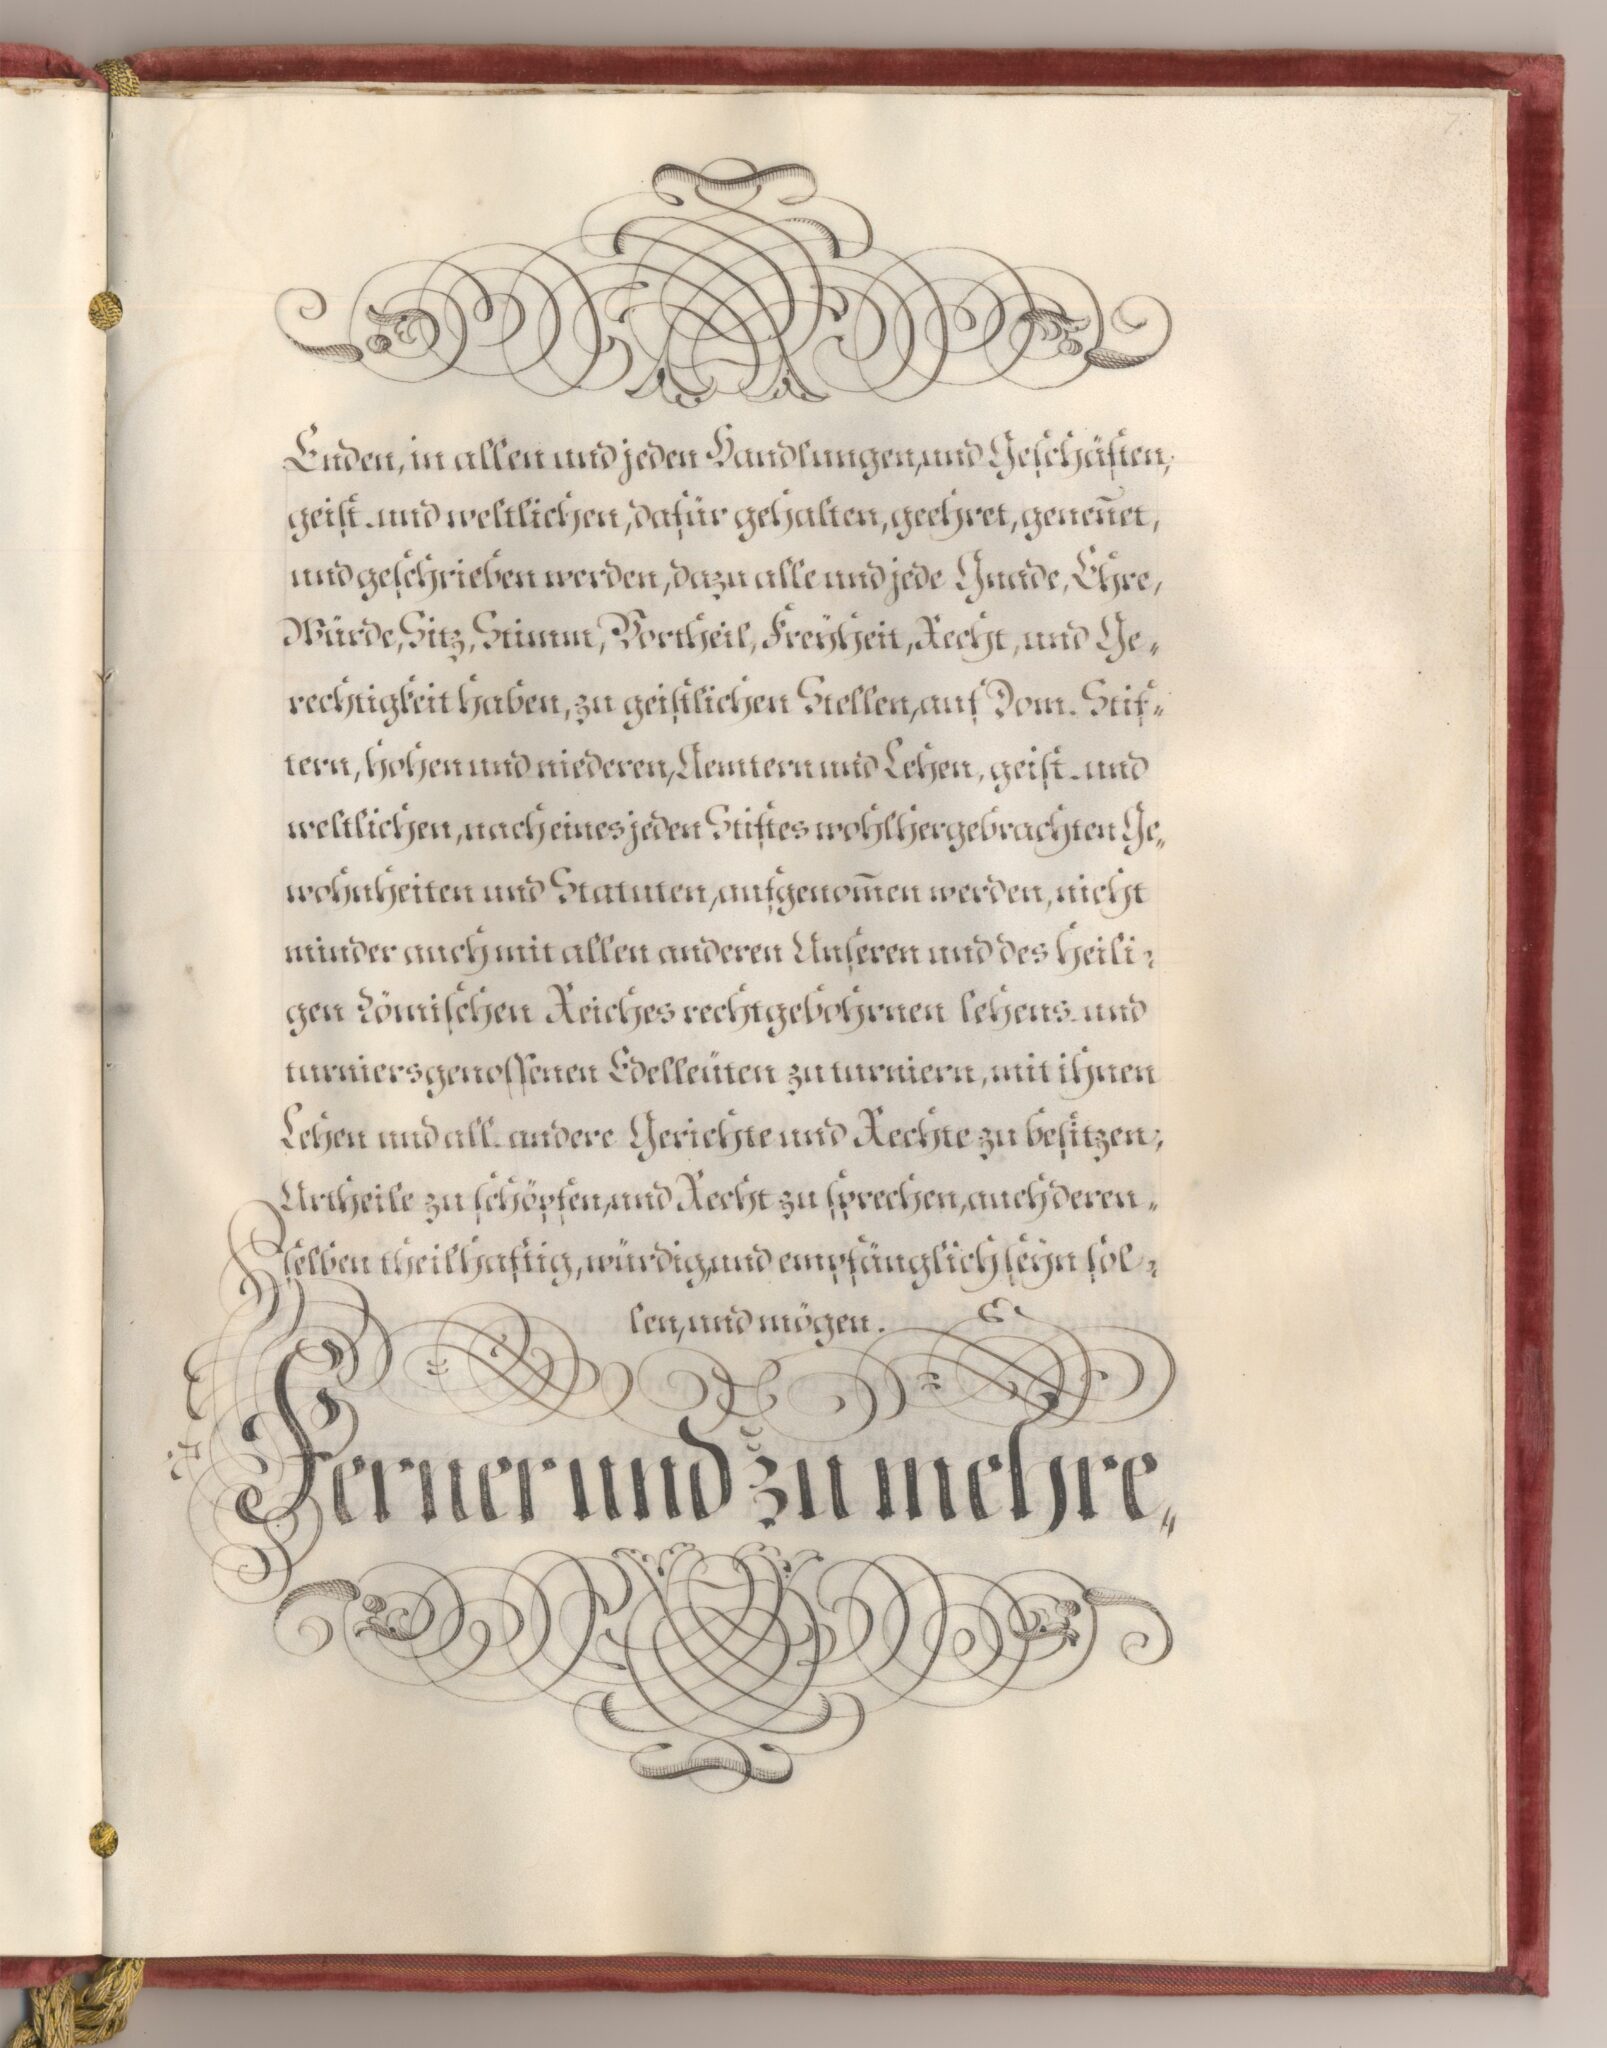 7.
Enden, in allen und jeden Handlungen, und Geschäften,
geist- und weltlichen, dafür gehalten, geehret, geneñet,
und geschrieben werden, dazu alle und jede Gnade, Ehre,
Würde, Sitz, Stimm, Vortheil, Freÿheit, Recht, und Ge„
rechtigkeit haben, zu geistlichen Stellen, auf Dom- Stif„
tern, hohen und niederen, Aemtern und Lehen, geist- und
weltlichen, nach eines jeden Stiftes wohlhergebrachten Ge„
wohnheiten und Statuten, aufgenom̃en werden, nicht
minder auch mit allen anderen Unseren und des heili„
gen Römischen Reiches rechtgebohrnen lehens- und
turniersgenossenen Edelleüten zu turniern, mit ihnen
Lehen und all- andere Gerichte und Rechte zu besitzen,
Urtheile zu schöpfen, und Recht zu sprechen, auch deren„
selben theilhaftig, würdig, und empfänglich seÿn sol„
len, und mögen.
Ferner und zu mehre„